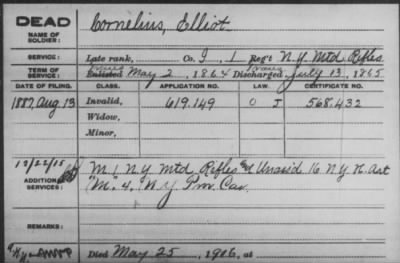 DEAD
NAME OF SOLDIER:
Cornelius, Elliot
SERVICE:
Late rank, Co. I, 1 Reg't N.Y. Mtd. Rifles
TERM OF SERVICE:
Enlisted May 2, 1864 Discharged July 13, 1865
DATE OF FILING. CLASS. APPLICATION NO. LAW. CERTIFICATE NO.
1887, Aug. 13 Invalid, 619.149 O J 568.432
Widow,
Minor,
12/22/15
ADDITIONAL SERVICES:
M. 1 N.Y. Mtd Rifles Unass'd 16 N.Y. H. Art
"M." 4. N.Y. Prov. Cav.
REMARKS:
Died May 25, 1906, at